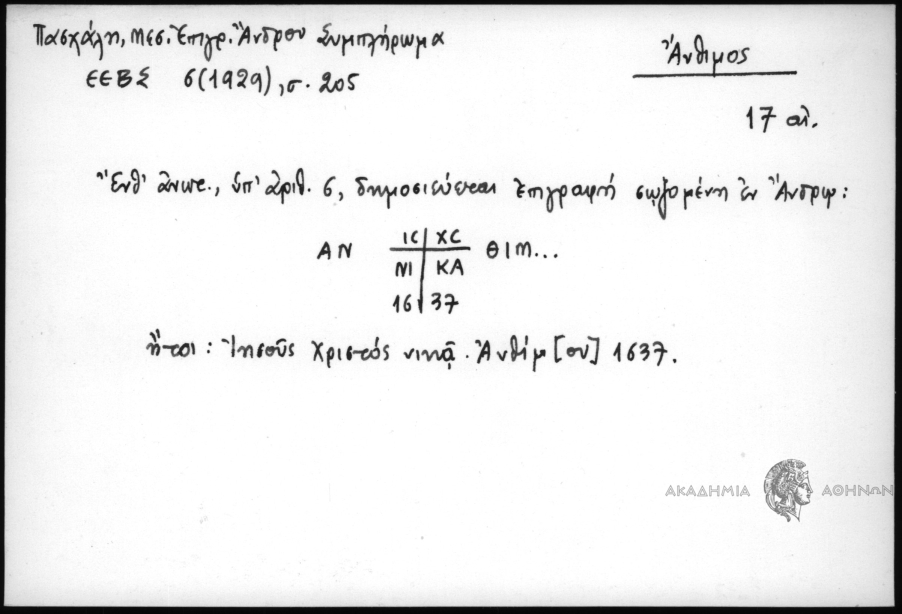 Πασχάλη, Μεσ. Ἐπιγρ. Ἄνδρου Συμπλήρωμα
ΕΕΒΣ 6(1929), σ. 205
Ἄνθιμος
17 αἰ.
Ἔνθ' ἀνωτ., ὑπ' ἀριθ. 6, δημοσιεύεται ἐπιγραφή σῳζομένη ἐν Ἄνδρῳ:
ΑΝ IC | XC ΘΙΜ...
ΝΙ | ΚΑ
16 | 37
ἤτοι: Ἰησοῦς Χριστός νικᾷ. Ἀνθίμ[ου] 1637.
ΑΚΑΔΗΜΙΑ ΑΘΗΝΩΝ